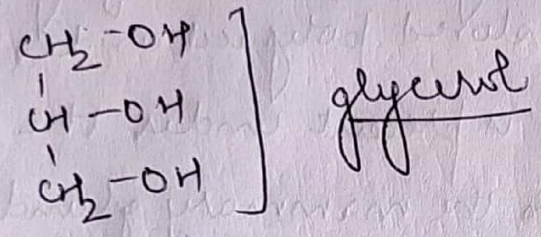 CH2-OH
CH-OH
CH2-OH
glycerol